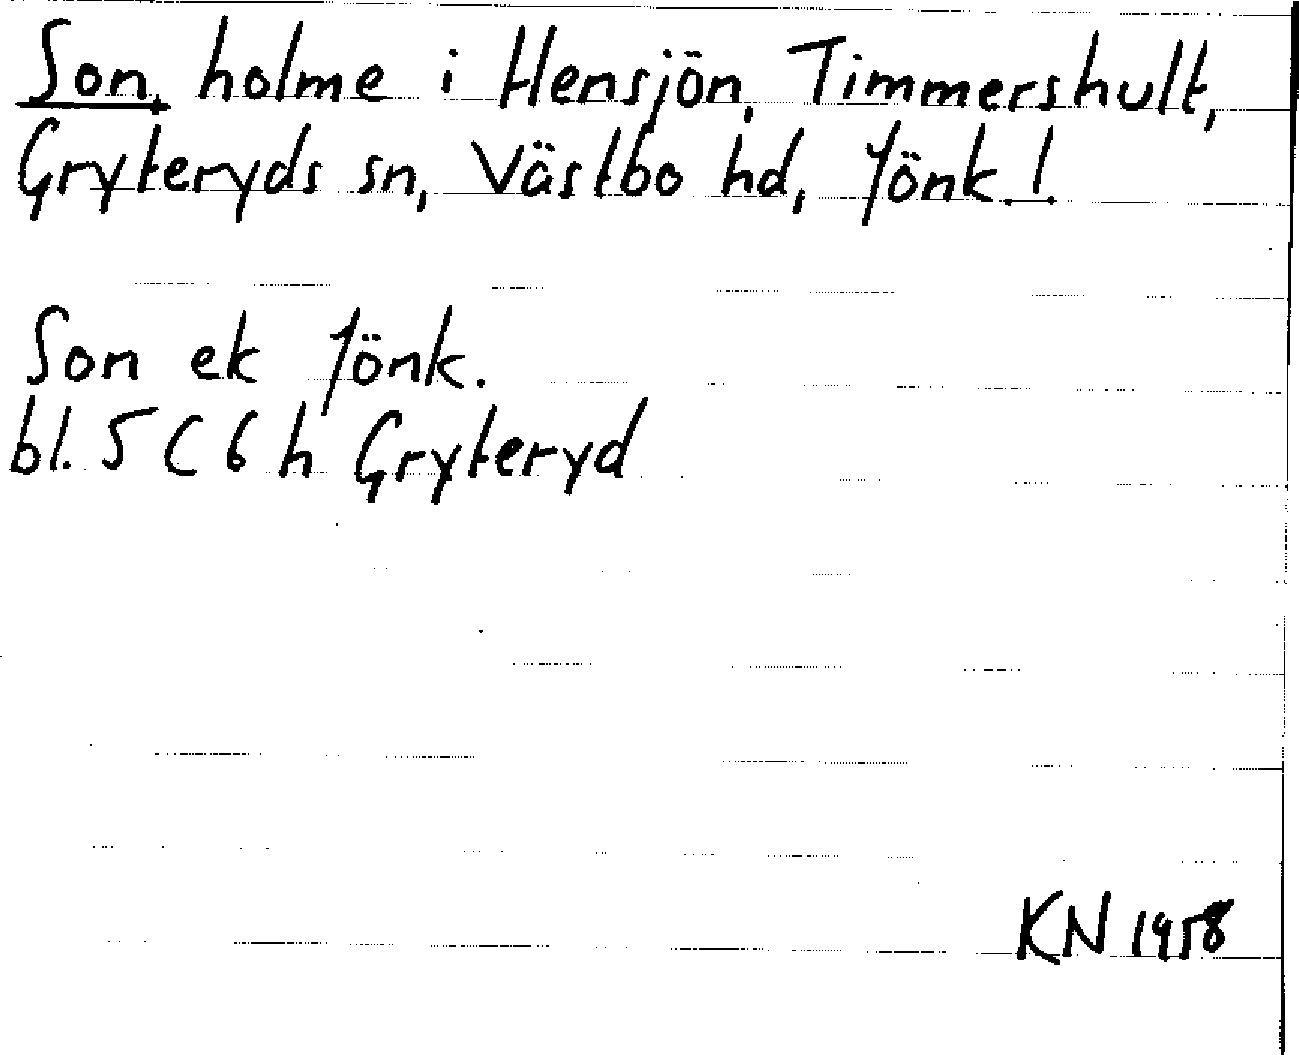 Son, holme i Hensjön, Timmershult,
Gryteryds sn, Västbo hd, Jönk. l.
Son ek Jönk.
bl. 5 C 6 h Gryteryd
KN 1958